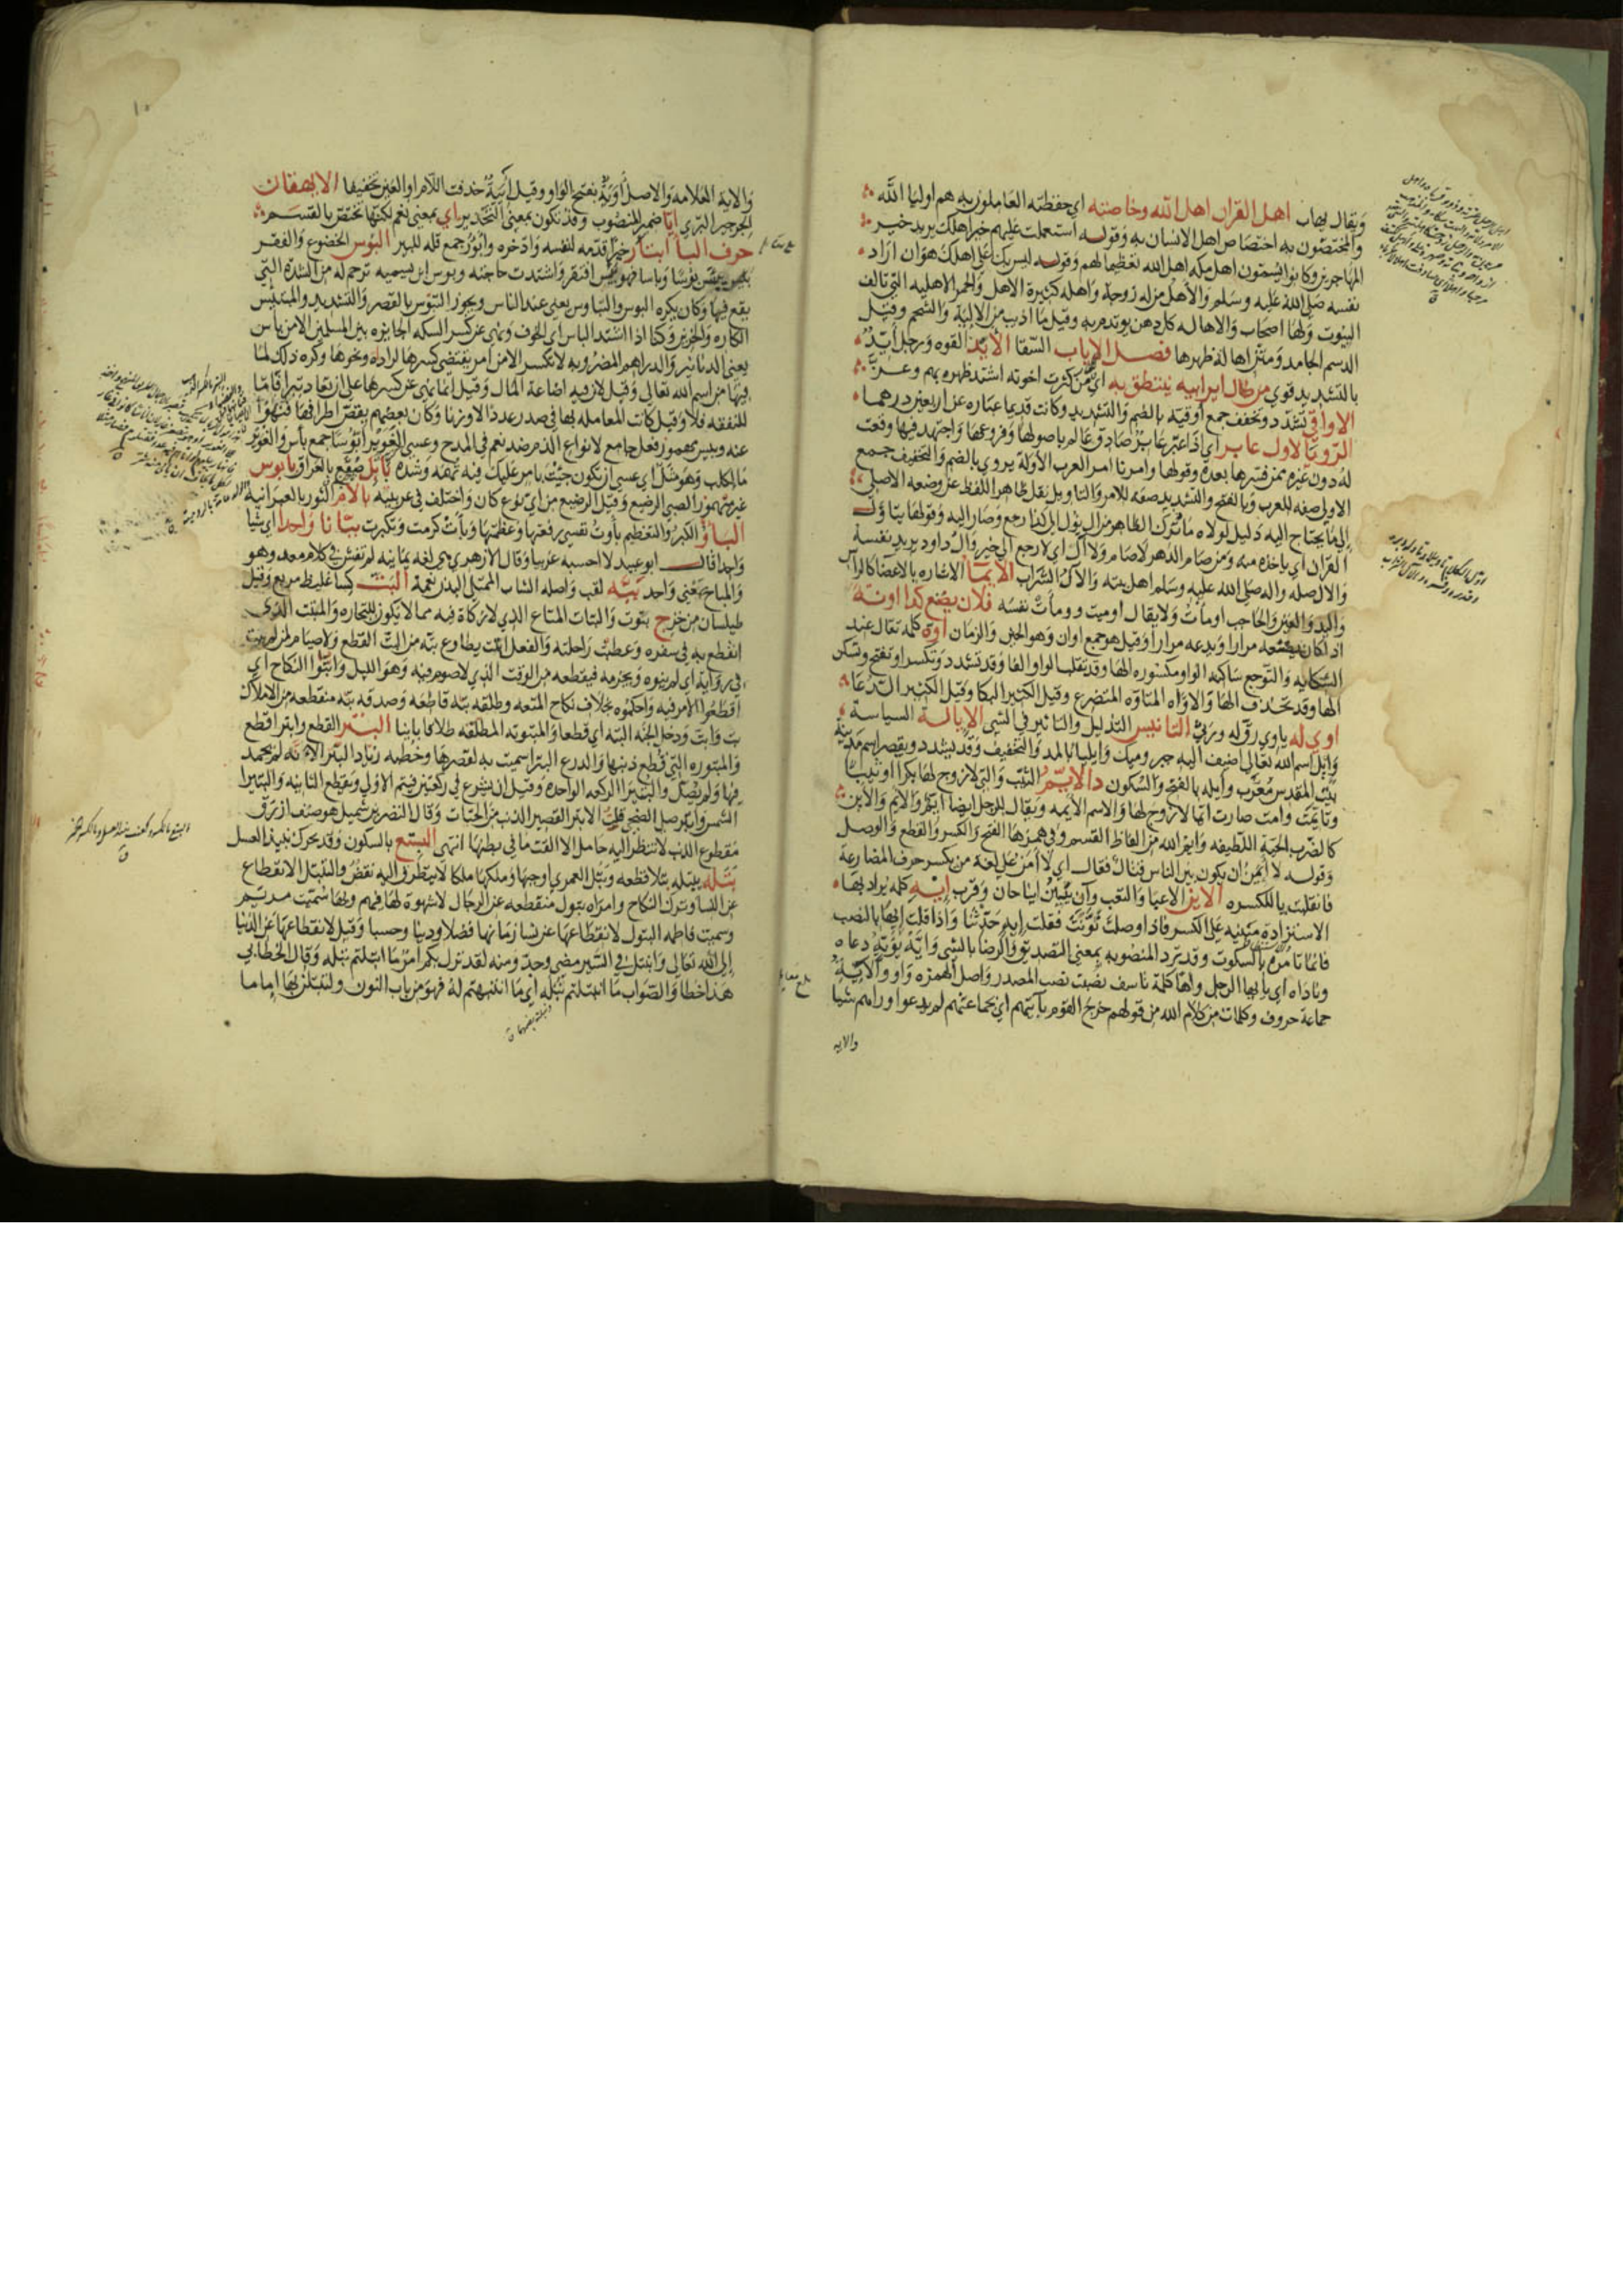 ويقال لهات اهل القران اهل الله وخاصته اي حفظته العاملون به هم اوليا الله
والمختصون به اختصاص اهل الانسان به وقوله استعملت عليهم خير اهلك يريد خير
المهاجرين وكانوا يسمون اهل مكه اهل الله تعظيما لهم وقوله ليس بك على اهلك هوان اراد
نفسه صلى الله عليه وسلم والاهل منزله زوجة واهله كثيرة الاهل والحمر الاهليه التي تالف
البيوت ولها اصحاب والاهاله كل دهن يوتدم به وقيل ما اذيب من الالية والشحم وقيل
الدسم الجامد ظهرها فصل الاياب السقا الأيد القوه ورجل أيّد
بالتشديد قوي من طال اير ابيه ينتطق به اي من كثرت اخوته اشتد ظهره بهم وعز
الاواقي تشدد وتخفف جمع اوقيه بالضم والتشديد وكانت قديما عباره عن اربعين درهما
الرويا لاول عابر اي اذا عبر عابر صادق عالم باصولها وفروعها واجتهد فيها وقعت
له دون غيره ممن فسرها بعده وقولها وامرنا امر العرب الأولة يروي بالضم والتخفيف جمع
الاولى صفه للعرب وبالفتح والتشديد صفه للامر والتاويل نقل ظاهر اللفظ عن وضعه الاصلي
الى ما يحتاج اليه دليل لولاه ما ترك الظاهر من ال يؤل الى كذا رجع وصار اليه وقولها يتاول
القران اي ياخذه منه ومن صام الدهر لا صام ولا آل اي لا رجع الى خير وال داود يريد نفسه
والال صله واله صلى الله عليه وسلم اهل بيته والآل السراب الايما الاشاره بالاعضا كالراس
واليد والعين والحاجب اومأت ولا يقال اوميت وومأت نفسه فلان يصنع كذا اونة
اذا كان يصنعه مرارا ويدعه مرارا وقيل هو جمع اوان وهو الحين والزمان اوه كلمه تقال عند
الشكايه والتوجع ساكنه الواو مكسوره الها وقد تقلب الواو الفا وقد تشدد وتكسر او تفتح وتسكن
الها وقد تحذف الها والاواه المتاوه المتضرع وقيل الكثير البكا وقيل الكثير الدعا
اوي له ياوي رق له ورثى التانيس التذليل والتاثير في الشي الايالة السياسة
وايل اسم الله تعالى اضيف اليه جبر وميك وايليا بالمد والتخفيف وقد يشدد ويقصر اسم مدينة
بيت المقدس معرّب وأيله بالفتح والسكون دالايّم الثيّب والتي لازوج لها بكرا او ثيبا
وتأيمت وامت صارت ايما لا زوج لها والاسم الأيمه ويقال للرجل ايضا ايم والايم والاين
كالضرب الحية اللطيفه وايم الله من الفاظ القسم وفي همزها الفتح والكسر والقطع والوصل
وقوله لا أيمن ان يكون بين الناس قتال فقال اي لا أمن على لغة من يكسر حرف المضارعة
فانقلبت يا للكسره الاين الاعيا والتعب وآن يئين اينا حان وقرب إيه كلمه يراد بها
الاستزادة مبنيه على الكسر فاذا وصلت نونت فقلت إيه حدثنا واذا قلت إيها بالنصب
فانما تامره بالسكوت وقد ترد المنصوبه بمعنى التصديق والرضا بالشي وأيّه يؤيّه دعاه
وناداه اي يا ايها الرجل واها كلمة تاسف نصبت نصب المصدر واصل الهمزه واو والآية
جماعة حروف وكلمات من كلام الله من قولهم خرج القوم بآيتهم اي بجماعتهم لم يدعوا وراهم شيا
والايه
والاية العلامه والاصل أوية بفتح الواو وقيل أئية حذفت اللام او العين تخفيفا الايهقان
الجرجير البري إيا ضمير المنصوب وقد تكون بمعنى التحذير اي بمعنى نعم لكنها تختص بالقسم
حرف البا ابتار خيرا قدمه لنفسه وادخره وأبؤر جمع قله للبير البوس الخضوع والفقر
افتقر واشتدت حاجته وبوس ابن سميه ترحم له من الشدة التي
يقع فيها وكان يكره البوس والتباوس يعني عند الناس ويجوز التبوس بالقصر والتشديد والمبتئس
الكاره والحزين وكنا اذا اشتد الباس اي الخوف ونهى عن كسر السكه الجايزه بين المسلمين الا من باس
يعني الدنانير والدراهم المضروبه لا تكسر الا من امر يقتضي كسرها لرداءة ونحوها وكره ذلك لما
فيها من اسم الله تعالى وقيل لان فيه اضاعة المال وقيل انما نهى عن كسرها على ان تعاد تبرا فاما
للنفقه فلا وقيل كانت المعامله بها في صدر عددا لا وزنا وكان بعضهم يقص اطرافها فنهوا
عنه وبيس مهموز فعل جامع لانواع الذم ضد نعم في المدح وعسى الغوير أبؤسا جمع بأس والغوير
ما لكلب وهو مثل اي عسى ان تكون جيت بامر عليك فيه تهمه وشده بابل صقع بالعراق بابوس
غير مهموز الصبي الرضيع وقيل الرضيع من اي نوع كان واختلف في عربيته بالام الثور بالعبرانية
البأو الكبر والتعظيم بأوت نفسي رفعتها وعظمتها وبأت كرمت وتكبرت ببّانا واحدا اي شيا
واحدا قال ابو عبيد لا احسبه عربيا وقال الازهري هي لغه يمانيه لم تفش في كلام معد وهو
والباج بمعنى واحد ببّه لقب واصله الشاب الممتلي البدن نعمة البت كسا غليظ مربع وقيل
طيلسان من خز ج بتوت والبتات المتاع الذي لا زكاة فيه مما لا يكون للتجاره والمنبت الذي
انقطع به في سفره وعطبت راحلته والفعل انبت يطاوع بته من البت القطع ولا صيام لمن لم يبت
في رواية اي لم ينوه ويجزمه فيقطعه من الوقت الذي لا صوم فيه وهو الليل وابتّوا النكاح اي
اقطعوا الامر فيه واحكموه بخلاف نكاح المتعه وطلقه بته قاطعه وصدقه بته منقطعه من الاملاك
بت وابت ودخل الجنه البته اي قطعا والمبتوته المطلقه طلاقا باينا البتر القطع وابتر اقطع
والمبتوره التي قطع ذنبها والدرع البترا سميت به لقصرها وخطبه زياد البترا لانه لم يحمد
فيها ولم يصل والبتيرا الركعه الواحده وقيل ان يشرع في ركعتين فيتم الاولى ويقطع الثانيه والبتيرا
الشمس وابتر صلى الضحى قلت الابتر القصير الذنب من الحيات وقال النضر بن شميل هو صنف ازرق
مقطوع الذنب لا تنظر اليه حامل الا القت ما في بطنها انتهى البتع بالسكون وقد يحرك نبيذ العسل
بتله يبتله بتلا قطعه وبتّل العمري اوجبها وملكها ملكا لا يتطرق اليه نقض والتبتل الانقطاع
عن النسا وترك النكاح وامراه بتول منقطعه عن الرجال لا شهوة لها فيهم وبها سميت مريم
وسميت فاطمه البتول لانقطاعها عن نسا زمانها فضلا ودينا وحسبا وقيل لانقطاعها عن الدنيا
الى الله تعالى وانبتل في السير مضى وجد ومنه لقد نزل بكم امر ما ابتلتم بتله وقال الخطابي
هذا خطا والصواب ما انتبلتم نبله اي ما انتبهتم له فهو من باب النون ولتبتلن لها إماما